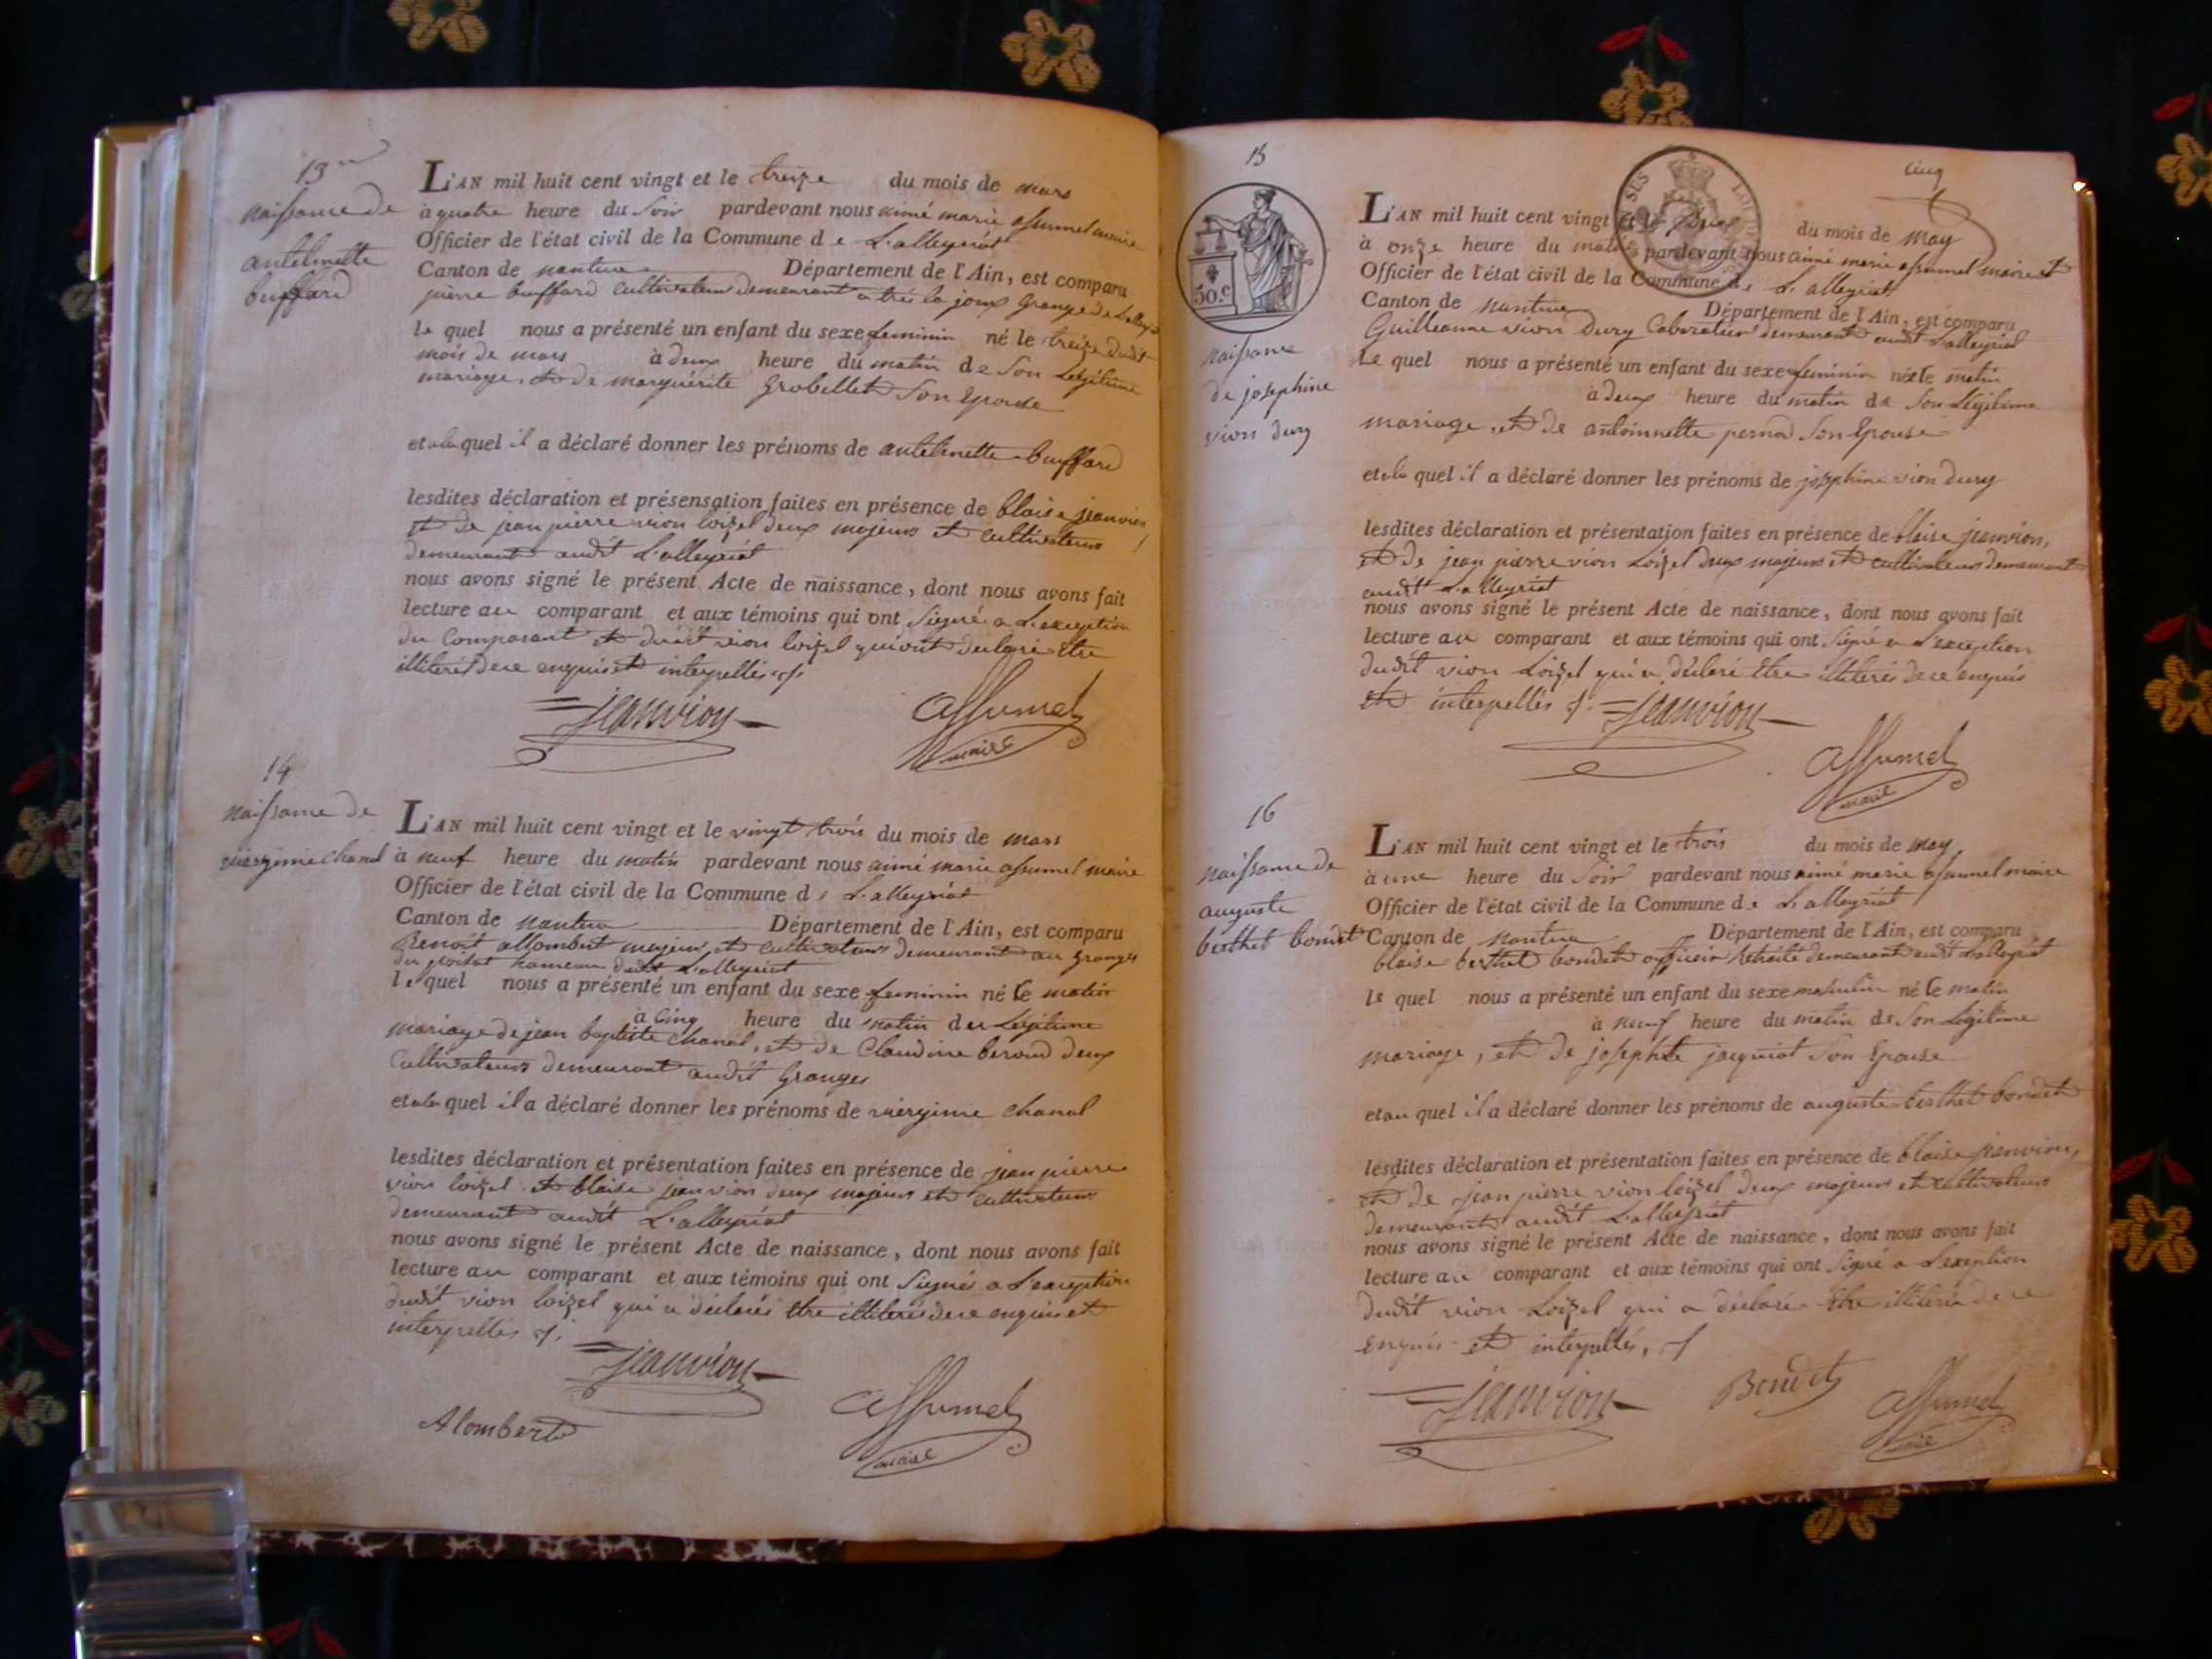 13
naissance de
anthelmette
buffard
L'AN mil huit cent vingt et le treize du mois de mars
à quatre heure du Soir pardevant nous aimé marie assumel maire
Officier de l'état civil de la Commune de L'alleyriat
Canton de nantua Département de l'Ain, est comparu
pierre buffard Cultivateur demeurant a la joux Grange de L'alleyriat
le quel nous a présenté un enfant du sexe feminin né le treize dudit
mois de mars à deux heure du matin de Son Légitime
mariage, et de marguérite Grobellet Son Epouse
et ala quel il a déclaré donner les prénoms de anthelmette buffard
lesdites déclaration et présensation faites en présence de blaise jeanvion
et de jean pierre vion loizel deux majeurs et cultivateurs
demeurant audit L'alleyriat
nous avons signé le présent Acte de naissance, dont nous avons fait
lecture au comparant et aux témoins qui ont Signé a L'exception
du Comparant et dudit vion loizel qui ont declaré être
illiterés de ce enquis et interpellés
jeanvion
assumel
maire
14
naissance de
viergine chanal
L'AN mil huit cent vingt et le vingt trois du mois de mars
à neuf heure du matin pardevant nous aimé marie assumel maire
Officier de l'état civil de la Commune de L'alleyriat
Canton de nantua Département de l'Ain, est comparu
Benoit allombert majeur, et cultivateur demeurant au Granges
du poisat hameau dudit L'alleyriat
le quel nous a présenté un enfant du sexe feminin né le matin
à Cinq heure du matin de Légitime
mariage de jean baptiste chanal, et de Claudine beroud deux
Cultivateurs demeurant audit Granges
et ala quel il a déclaré donner les prénoms de viergine chanal
lesdites déclaration et présentation faites en présence de jean pierre
vion loizel et blaise jeanvion deux majeurs et cultivateurs
demeurant audit L'alleyriat
nous avons signé le présent Acte de naissance, dont nous avons fait
lecture au comparant et aux témoins qui ont Signé a L'exception
dudit vion loizel qui a déclaré être illiterés de ce enquis et
interpellés
jeanvion
Alombert
assumel
maire
cinq
15
50.c
naissance
de josephine
vion dury
L'AN mil huit cent vingt et le deux du mois de may
à onze heure du matin pardevant nous aimé marie assumel maire et
Officier de l'état civil de la Commune de L'alleyriat
Canton de nantua Département de l'Ain, est comparu
Guilleaume vion Dury Laborateur demeurant audit L'alleyriat
Le quel nous a présenté un enfant du sexe feminin né le matin
à deux heure du matin de Son Légitime
mariage, et de antoinnette pernod Son Epouse
et ala quel il a déclaré donner les prénoms de josephine vion dury
lesdites déclaration et présentation faites en présence de blaise jeanvion,
et de jean pierre vion Loizel deux majeurs et cultivateurs demeurant
audit L'alleyriat
nous avons signé le présent Acte de naissance, dont nous avons fait
lecture au comparant et aux témoins qui ont Signé a L'exception
dudit vion Loizel qui a déclaré être illiterés de ce enquis
et interpellés
jeanvion
assumel
maire
16
naissance de
auguste
berthet bondet
L'AN mil huit cent vingt et le trois du mois de may
à une heure du Soir pardevant nous aimé marie assumel maire
Officier de l'état civil de la Commune de L'alleyriat
Canton de nantua Département de l'Ain, est comparu
blaise berthet bondet officier retraité demeurant audit L'alleyriat
le quel nous a présenté un enfant du sexe masculin né le matin
à neuf heure du matin de Son Légitime
mariage, et de josephte jacquiot Son Epouse
et au quel il a déclaré donner les prénoms de auguste berthet bondet
lesdites déclaration et présentation faites en présence de blaise jeanvion,
et de jean pierre vion loizel deux majeurs et cultivateurs
demeurant audit L'alleyriat
nous avons signé le présent Acte de naissance, dont nous avons fait
lecture au comparant et aux témoins qui ont Signé a L'exception
dudit vion Loizel qui a déclaré être illiterés de ce
enquis et interpellés,
jeanvion
Bondet
assumel
maire